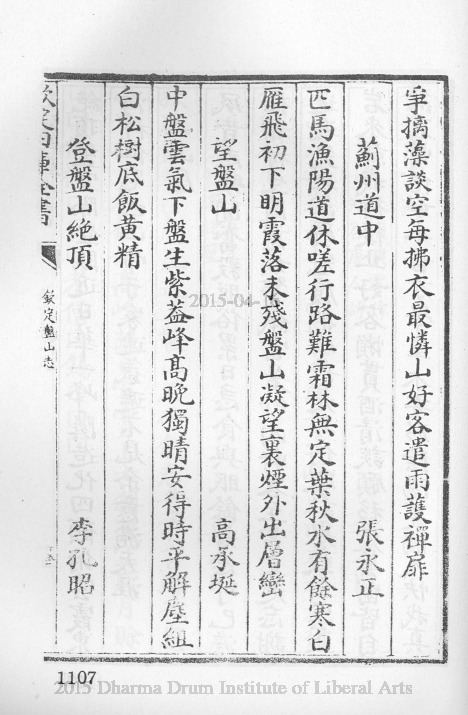 爭摛藻談空每拂衣最憐山好客遣雨護禪扉
薊州道中 張永正
匹馬漁陽道休嗟行路難霜林無定葉秋水有餘寒白
雁飛初下明霞落未殘盤山凝望裏煙外出層巒
望盤山 高承埏
中盤雲氣下盤生紫蓋峰髙晚獨晴安得時平解塵組
白松樹底飯黄精
登盤山絶頂 李孔昭
欽定四庫全書
欽定盤山志
2015-04-
1107
2015 Dharma Drum Institute of Liberal Arts